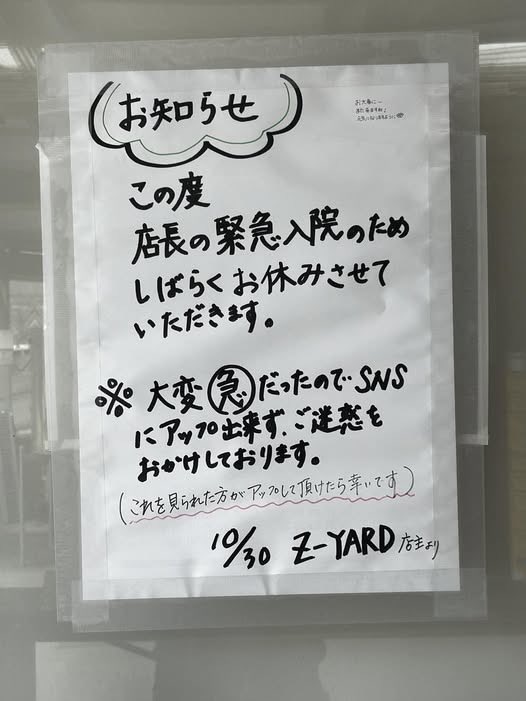 お知らせ
お大事に〜
この度
店長の緊急入院のため
しばらくお休みさせて
いただきます。
※大変急だったのでSNS
にアップ出来ず、ご迷惑を
おかけしております。
(これを見られた方がアップして頂けたら幸いです)
10/30 Z-YARD 店主より